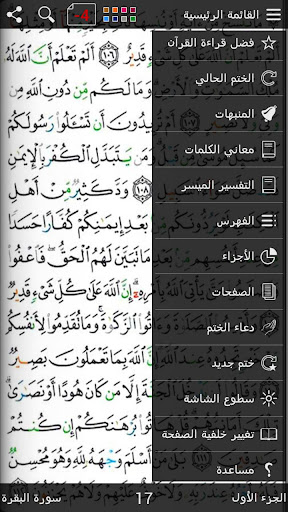 القائمة الرئيسية
-4
فضل قراءة القرآن
الختم الحالي
المنبهات
معاني الكلمات
التفسير الميسر
الفهرس
الأجزاء
الصفحات
دعاء الختم
ختم جديد
سطوع الشاشة
تغيير خلفية الصفحة
مساعدة
قَدِيرٌ ١٠٦ أَلَمْ تَعْلَمْ أَنَّ ٱللَّهَ لَهُ
وَمَا لَكُم مِّن دُونِ ٱللَّهِ
تُرِيدُونَ أَن تَسْـَٔلُوا۟ رَسُولَكُمْ
وَمَن يَتَبَدَّلِ ٱلْكُفْرَ بِٱلْإِيمَٰنِ
١٠٨ وَدَّ كَثِيرٌ مِّنْ أَهْلِ
بَعْدِ إِيمَٰنِكُمْ كُفَّارًا حَسَدًا
مَا تَبَيَّنَ لَهُمُ ٱلْحَقُّ فَٱعْفُوا۟
إِنَّ ٱللَّهَ عَلَىٰ كُلِّ شَىْءٍ قَدِيرٌ
ٱلزَّكَوٰةَ وَمَا تُقَدِّمُوا۟ لِأَنفُسِكُم
عِندَ ٱللَّهِ إِنَّ ٱللَّهَ بِمَا تَعْمَلُونَ بَصِيرٌ
مَن كَانَ هُودًا أَوْ نَصَٰرَىٰ
بُرْهَٰنَكُمْ إِن كُنتُمْ
أَسْلَمَ وَجْهَهُۥ لِلَّهِ وَهُوَ مُحْسِنٌ
الجزء الأول 17 سورة البقرة